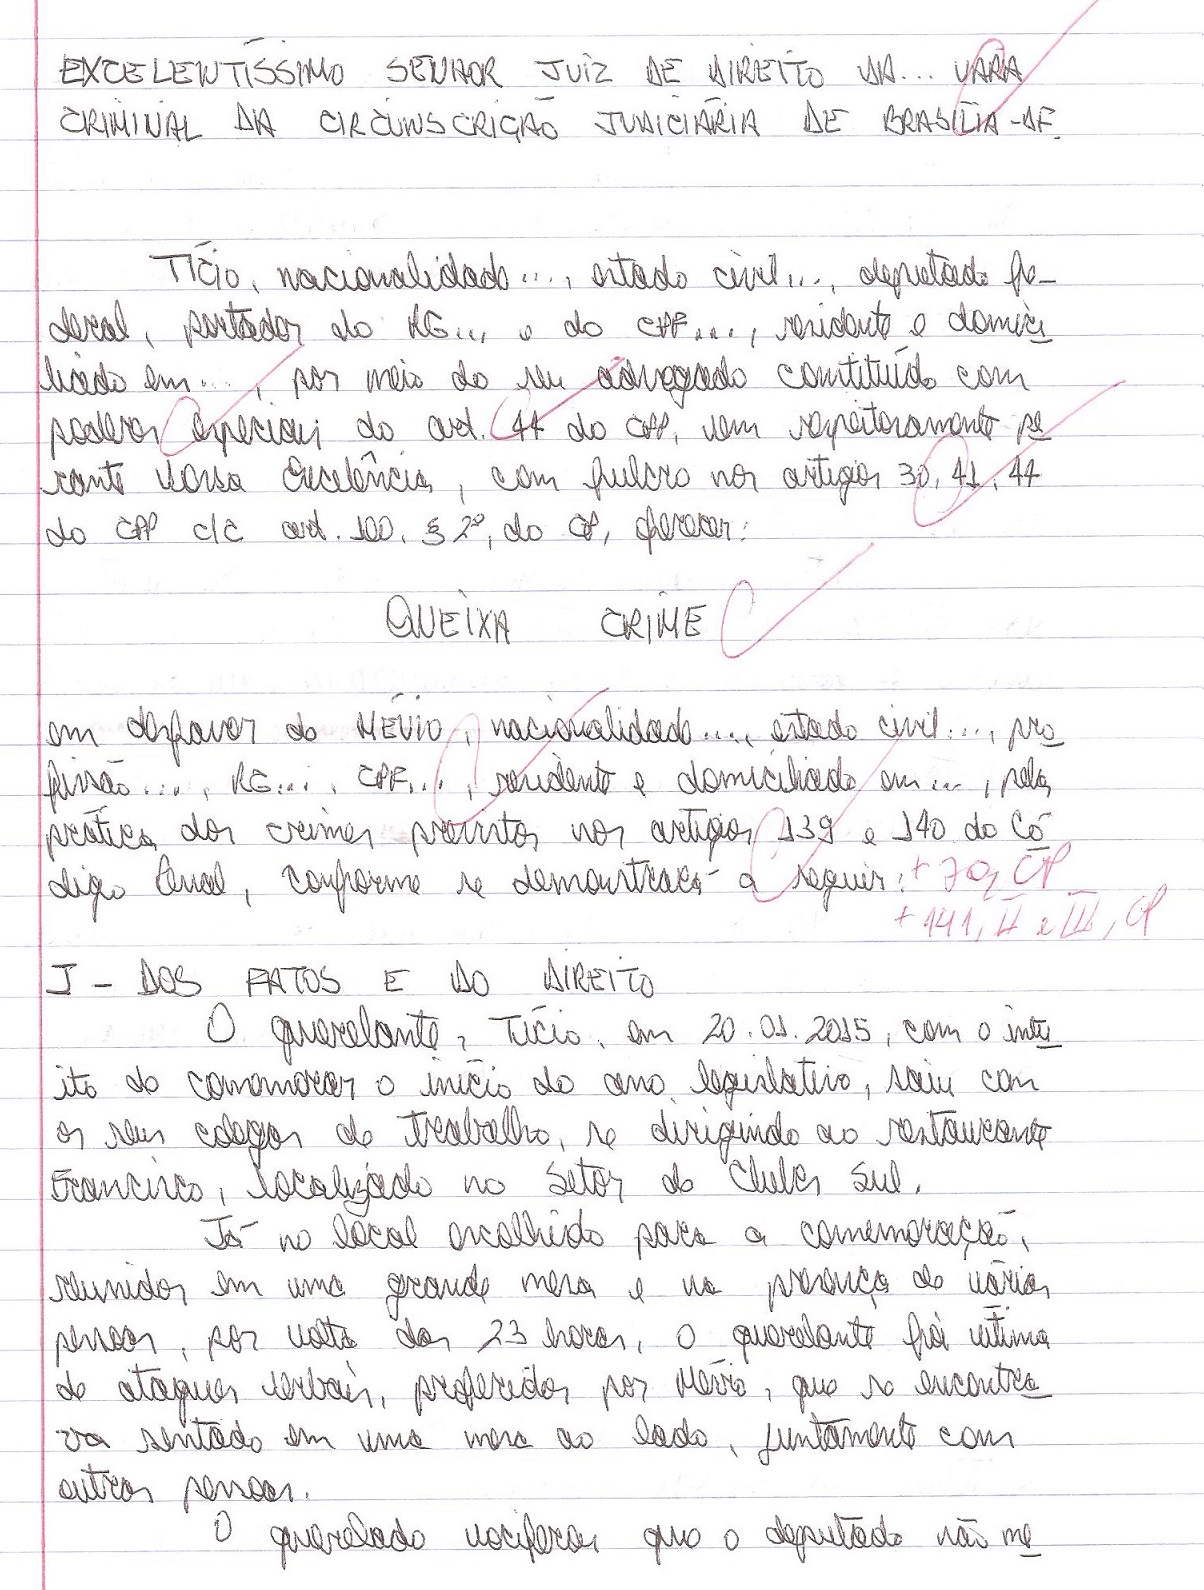 EXCELENTÍSSIMO SENHOR JUIZ DE DIREITO DA... VARA
CRIMINAL DA CIRCUNSCRIÇÃO JUDICIÁRIA DE BRASÍLIA-DF.
Tício, nacionalidade..., estado civil..., deputado fe-
deral, portador do RG... e do CPF..., residente e domici
liado em..., por meio do seu advogado constituído com
poderes especiais do art. 44 do CPP, vem respeitosamente pe
rante Vossa Excelência, com fulcro nos artigos 30, 41, 44
do CPP c/c art. 100, § 2º, do CP, oferecer:
QUEIXA CRIME
em desfavor de MÉVIO, nacionalidade..., estado civil..., pro
fissão..., RG..., CPF..., residente e domiciliado em..., pela
prática dos crimes previstos nos artigos 139 e 140 do Có
digo Penal, conforme se demonstrará a seguir: + 70, CP
+ 141, II e III, CP
I - DOS FATOS E DO DIREITO
O querelante, Tício, em 20.01.2015, com o intu
ito de comemorar o início do ano legislativo, saiu com
os seus colegas de trabalho, se dirigindo ao restaurante
Francisco, localizado no Setor de Clubes Sul.
Já no local escolhido para a comemoração,
reunidos em uma grande mesa e na presença de várias
pessoas, por volta das 23 horas, o querelante foi vítima
de ataques verbais, proferidos por Mévio, que se encontra
va sentado em uma mesa ao lado, juntamente com
outras pessoas.
O querelado vociferou que o deputado não me